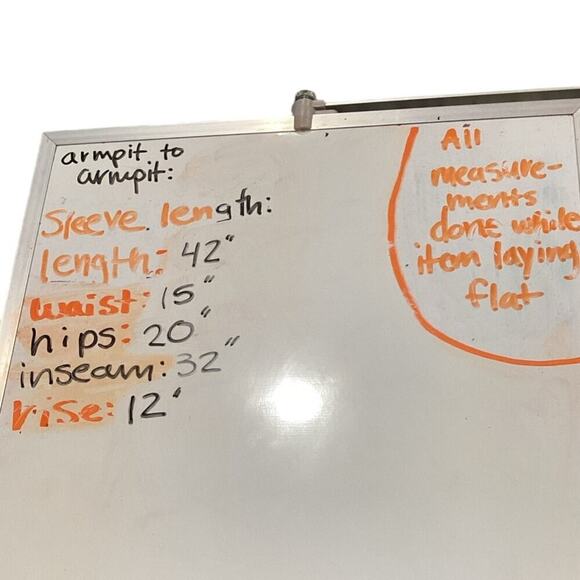 armpit to
armpit:
Sleeve length:
length: 42"
waist: 15"
hips: 20"
inseam: 32"
rise: 12"
All
measure-
ments
done while
item laying
flat